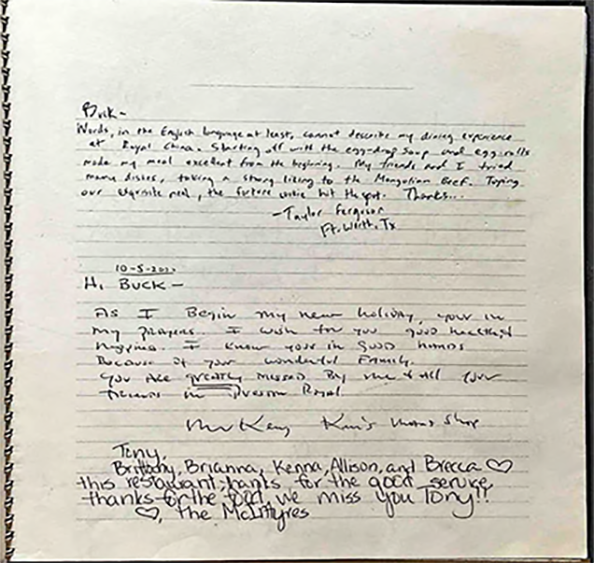 Buck-
Words, in the English language at least, cannot describe my dining experience
at Royal China. Starting off with the egg-drop soup and eggrolls
made my meal excellent from the beginning. My friends and I tried
many dishes, taking a strong liking to the Mongolian Beef. Toping
our meal, the future cookie hit the spot. Thanks...
-Taylor Ferguson
Ft. Worth, Tx
10-5-20
Hi BUCK-
As I Begin my new holiday, your in
my prayers. I wish for you good health &
I know your in good hands
Because of your wonderful Family.
You are greatly missed By me & all your
in Royal
Mr Keny Shop
Tony,
Brittany, Brianna, Kenna, Allison, and Brecca ♡
this restaurant. thanks for the good service
thanks for the food, we miss you Tony!!
♡, the McIntyres